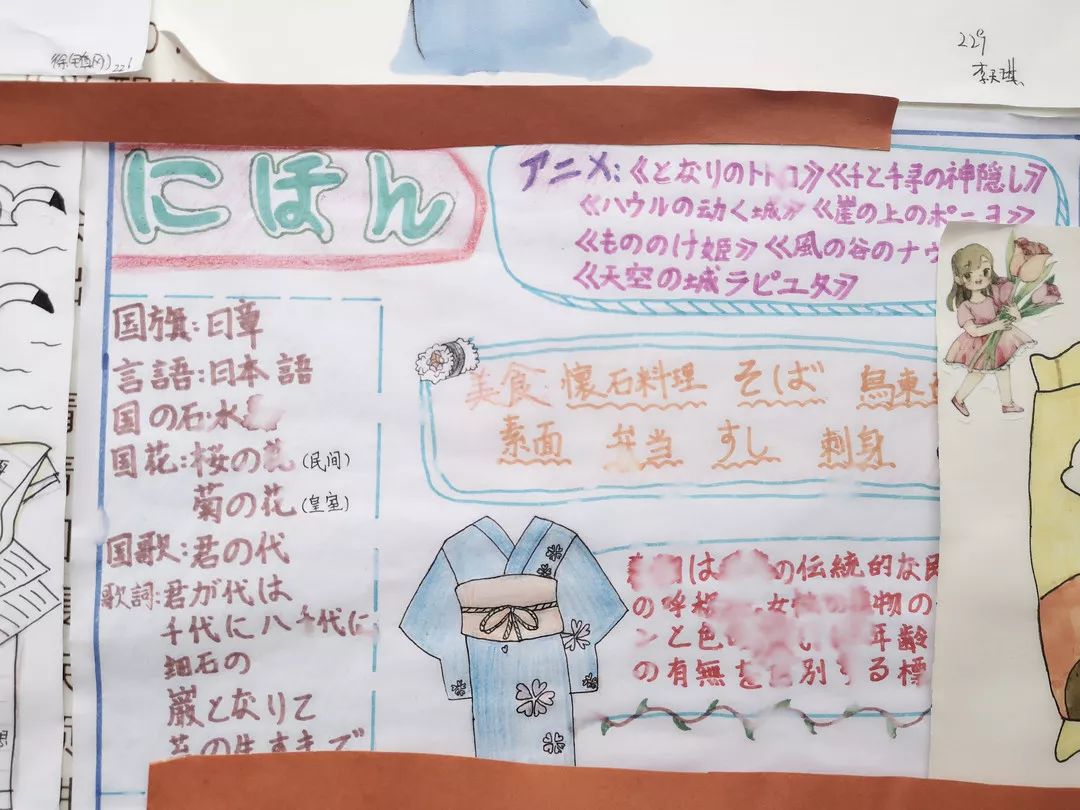 229
李天琪
にほん
アニメ:《となりのトトロ》《千と千尋の神隠し》
《ハウルの动く城》《崖の上のポニョ》
《もののけ姫》《風の谷のナウ
《天空の城ラピュタ》
国旗:日章
言語:日本語
国の石:水
国花:桜の花(民间)
菊の花(皇室)
国歌:君の代
歌詞:君が代は
千代に八千代に
細石の
巌となりて
の生すまで
美食:懐石料理 そば 烏東
素面 弁当 すし 刺身
は の伝統的な民
の呼称 女性の 物の
ンと色 年齢
の有無を 別する標